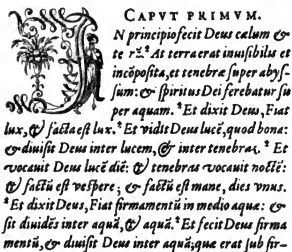 CAPVT PRIMVM.
IN principio fecit Deus cælum &
terā. ² At terra erat inuisibilis et
incōposita, et tenebræ super abys-
sum: & spiritus Dei ferebatur su
per aquam. ³ Et dixit Deus, Fiat
lux, & facta est lux. ⁴ Et vidit Deus lucē, quod bona:
& diuisit Deus inter lucem, & inter tenebras. ⁵ Et
vocauit Deus lucē diē: & tenebras vocauit noctē:
& factū est vespere; & factū est mane, dies vnus.
⁶ Et dixit Deus, Fiat firmamentū in medio aquæ: &
sit diuidēs inter aquā, & aquā. ⁷ Et fecit Deus firma
mentū, & diuisit Deus inter aquā; quæ erat sub fir-